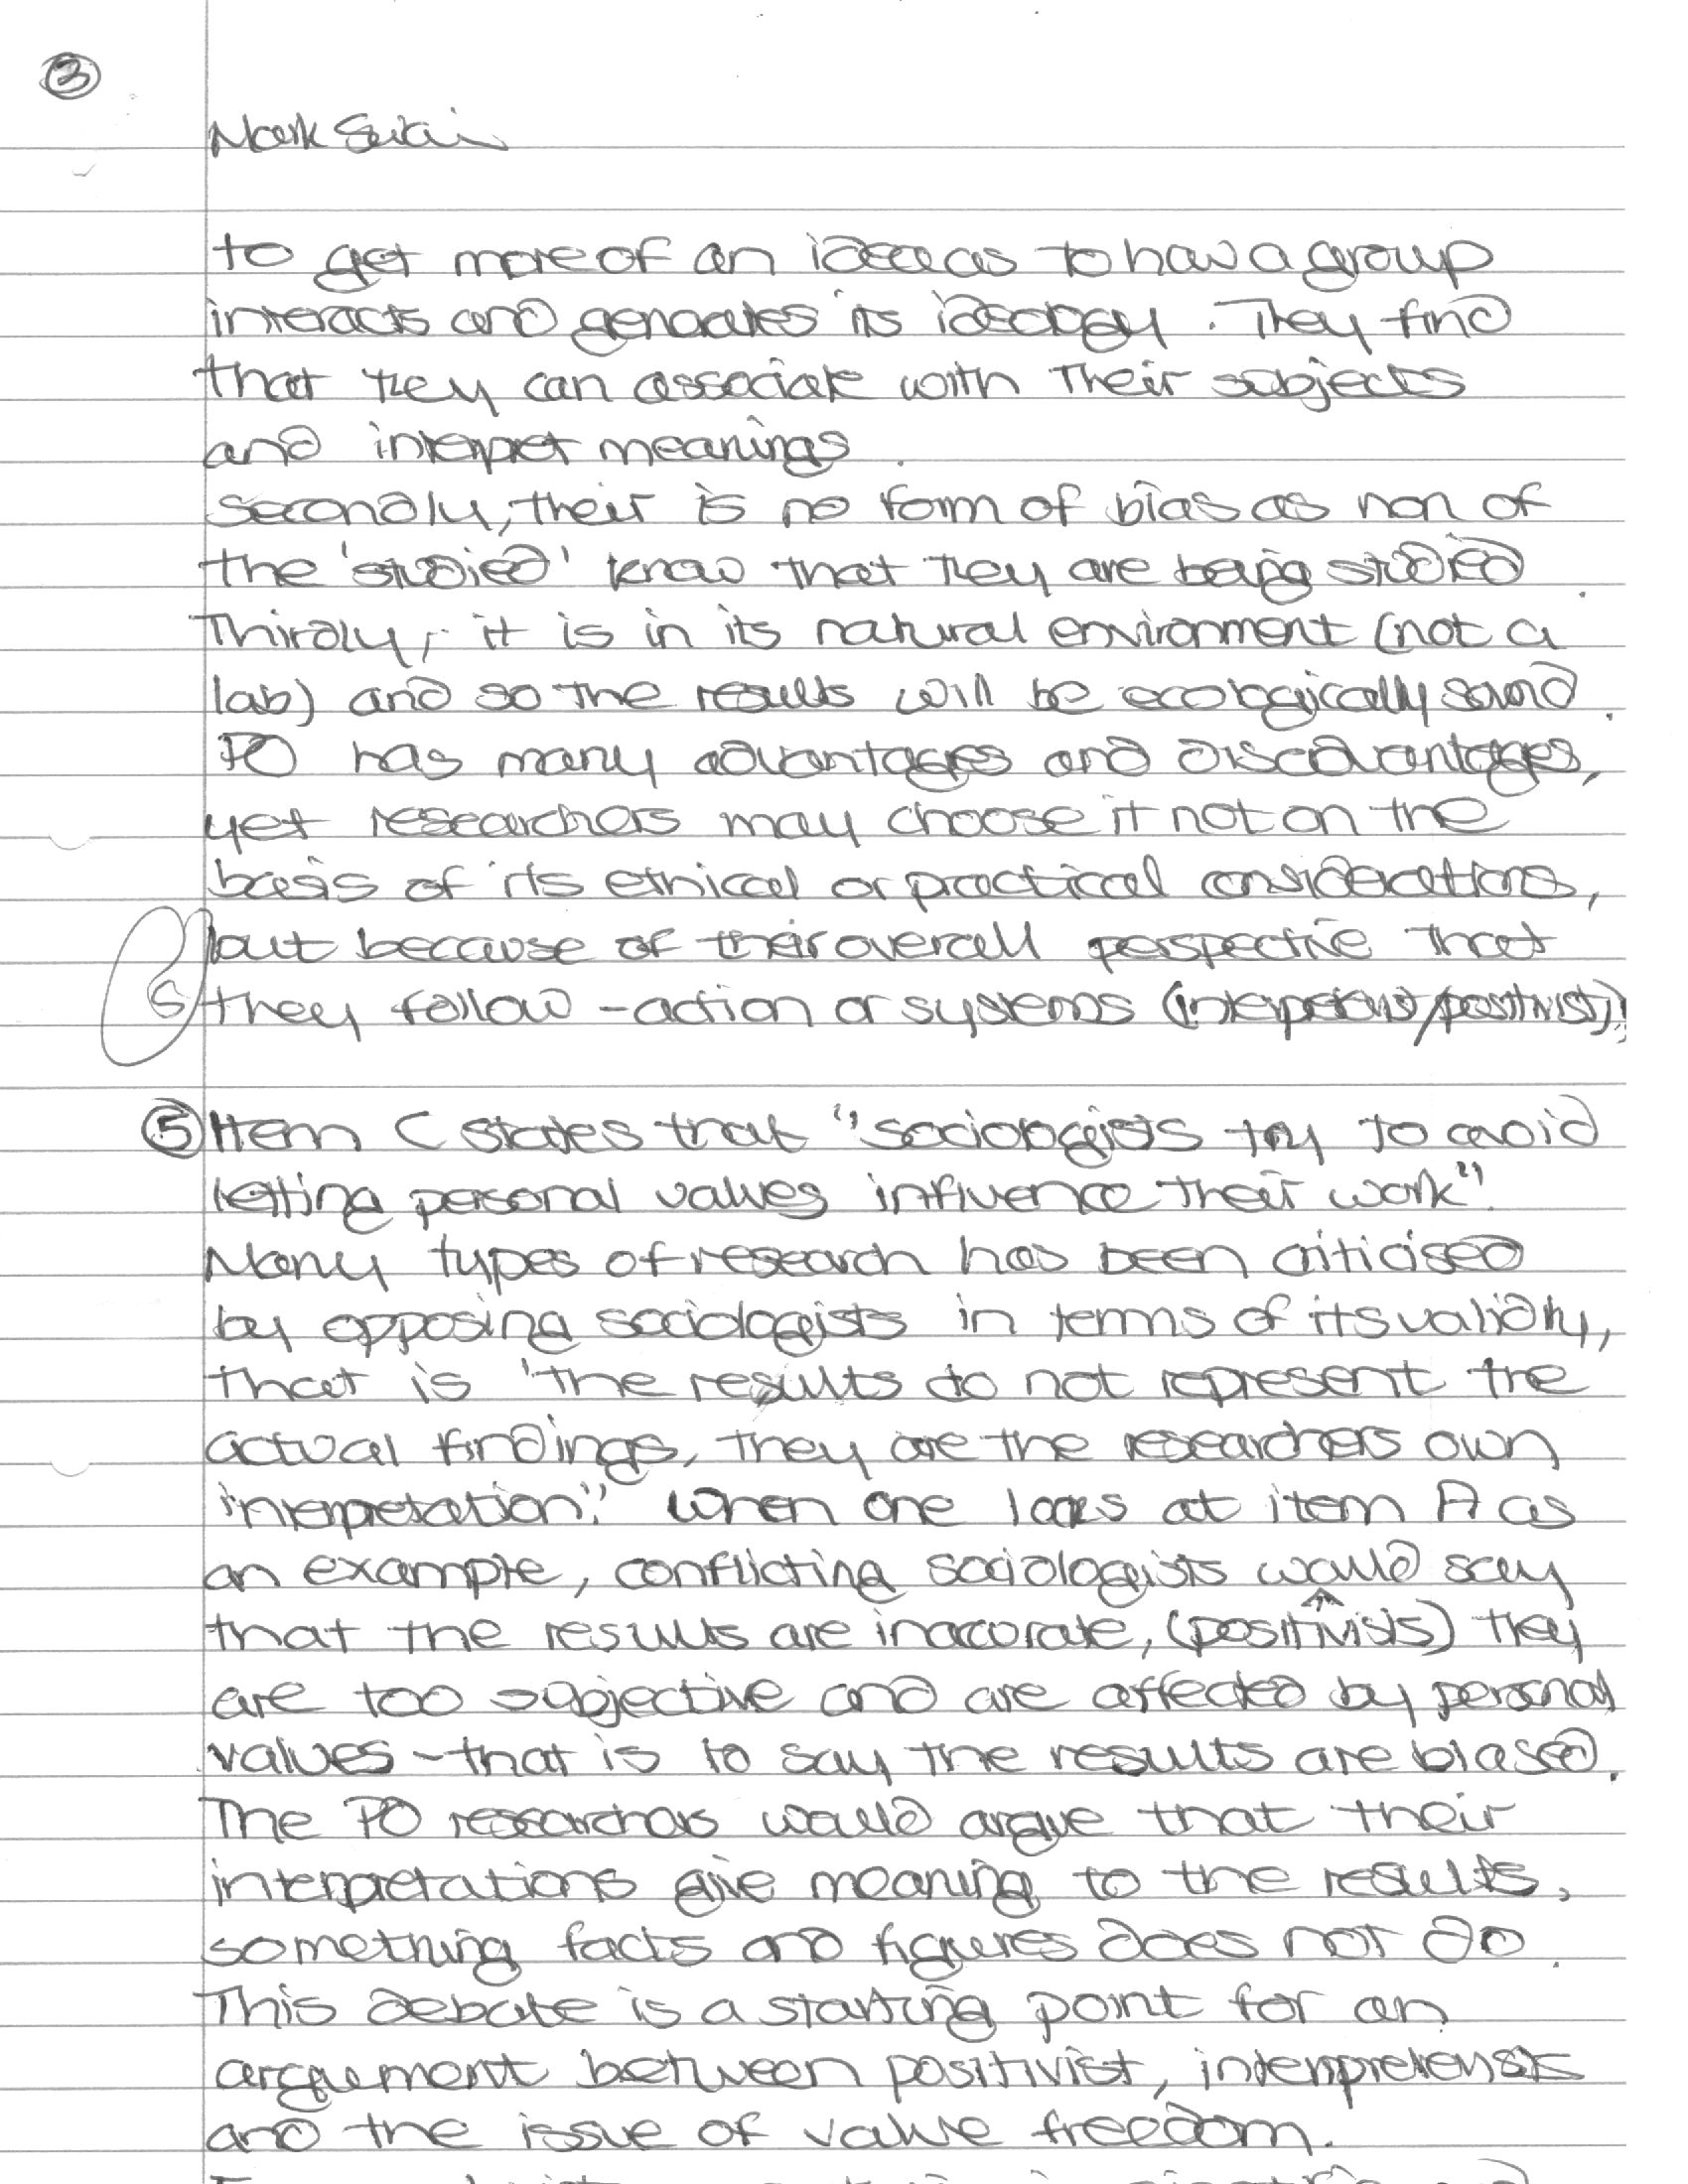 3
Mark
to get more of an idea as to how a group
interacts and generates its ideology. They find
that they can associate with their subjects
and interpret meanings.
Secondly, their is no form of bias as non of
the 'studied' know that they are being studied.
Thirdly, it is in its natural environment (not a
lab) and so the results will be ecologically sound.
PO has many advantages and disadvantages,
yet researchers may choose it not on the
basis of its ethical or practical considerations,
but because of their overall perspective that
they follow - action or systems (interpretivist/positivist).
5 Item C states that "sociologists try to avoid
letting personal values influence their work".
Many types of research has been criticised
by opposing sociologists in terms of its validity,
that is "the results do not represent the
actual findings, they are the researchers own
interpretation." When one looks at item A as
an example, conflicting sociologists would say
that the results are inaccorate, (positivists) they
are too subjective and are affected by personal
values - that is to say the results are biased.
The PO researchers would argue that their
interpretations give meaning to the results,
something facts and figures does not do.
This debate is a starting point for an
arguement between positivist, interpretevists
and the issue of value freedom.